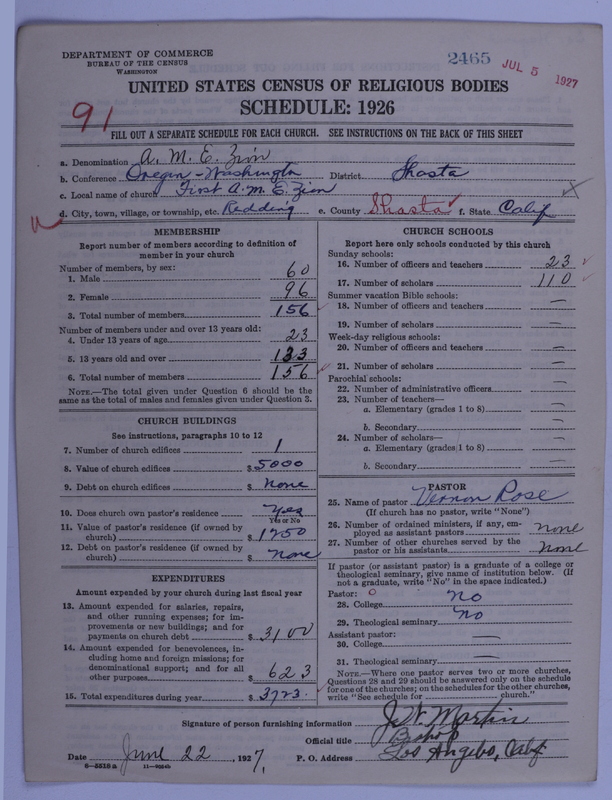 DEPARTMENT OF COMMERCE
BUREAU OF THE CENSUS
WASHINGTON
2465
JUL 5 1927
UNITED STATES CENSUS OF RELIGIOUS BODIES
SCHEDULE: 1926
91
FILL OUT A SEPARATE SCHEDULE FOR EACH CHURCH. SEE INSTRUCTIONS ON THE BACK OF THIS SHEET
a. Denomination A. M. E. Zion
b. Conference Oregon-Washington District Shasta
c. Local name of church First A. M. E. Zion
d. City, town, village, or township, etc. Redding e. County Shasta f. State Calif
MEMBERSHIP
Report number of members according to definition of
member in your church
Number of members, by sex:
1. Male 60
2. Female 96
3. Total number of members 156
Number of members under and over 13 years old:
4. Under 13 years of age 23
5. 13 years old and over 133
6. Total number of members 156
NOTE.—The total given under Question 6 should be the
same as the total of males and females given under Question 3.
CHURCH BUILDINGS
See instructions, paragraphs 10 to 12
7. Number of church edifices 1
8. Value of church edifices $ 5000
9. Debt on church edifices $ None
10. Does church own pastor's residence Yes
Yes or No
11. Value of pastor's residence (if owned by
church) $ 1250
12. Debt on pastor's residence (if owned by
church) $ none
EXPENDITURES
Amount expended by your church during last fiscal year
13. Amount expended for salaries, repairs,
and other running expenses; for im-
provements or new buildings; and for
payments on church debt $ 3100
14. Amount expended for benevolences, in-
cluding home and foreign missions; for
denominational support; and for all
other purposes $ 623
15. Total expenditures during year $ 3723.
CHURCH SCHOOLS
Report here only schools conducted by this church
Sunday schools:
16. Number of officers and teachers 23
17. Number of scholars 110
Summer vacation Bible schools:
18. Number of officers and teachers —
19. Number of scholars —
Week-day religious schools:
20. Number of officers and teachers —
21. Number of scholars —
Parochial schools:
22. Number of administrative officers —
23. Number of teachers—
a. Elementary (grades 1 to 8) —
b. Secondary —
24. Number of scholars—
a. Elementary (grades 1 to 8) —
b. Secondary —
PASTOR
25. Name of pastor Vernon Rose
(If church has no pastor, write "None")
26. Number of ordained ministers, if any, em-
ployed as assistant pastors none
27. Number of other churches served by the
pastor or his assistants none
If pastor (or assistant pastor) is a graduate of a college or
theological seminary, give name of institution below. (If
not a graduate, write "No" in the space indicated.)
Pastor: 0
28. College no
29. Theological seminary no
Assistant pastor:
30. College —
31. Theological seminary —
NOTE.—Where one pastor serves two or more churches,
Questions 28 and 29 should be answered only on the schedule
for one of the churches; on the schedules for the other churches,
write "See schedule for church."
Signature of person furnishing information J. W. Martin
Official title Bishop
Date June 22, 1927, P. O. Address Los Angeles, Calif